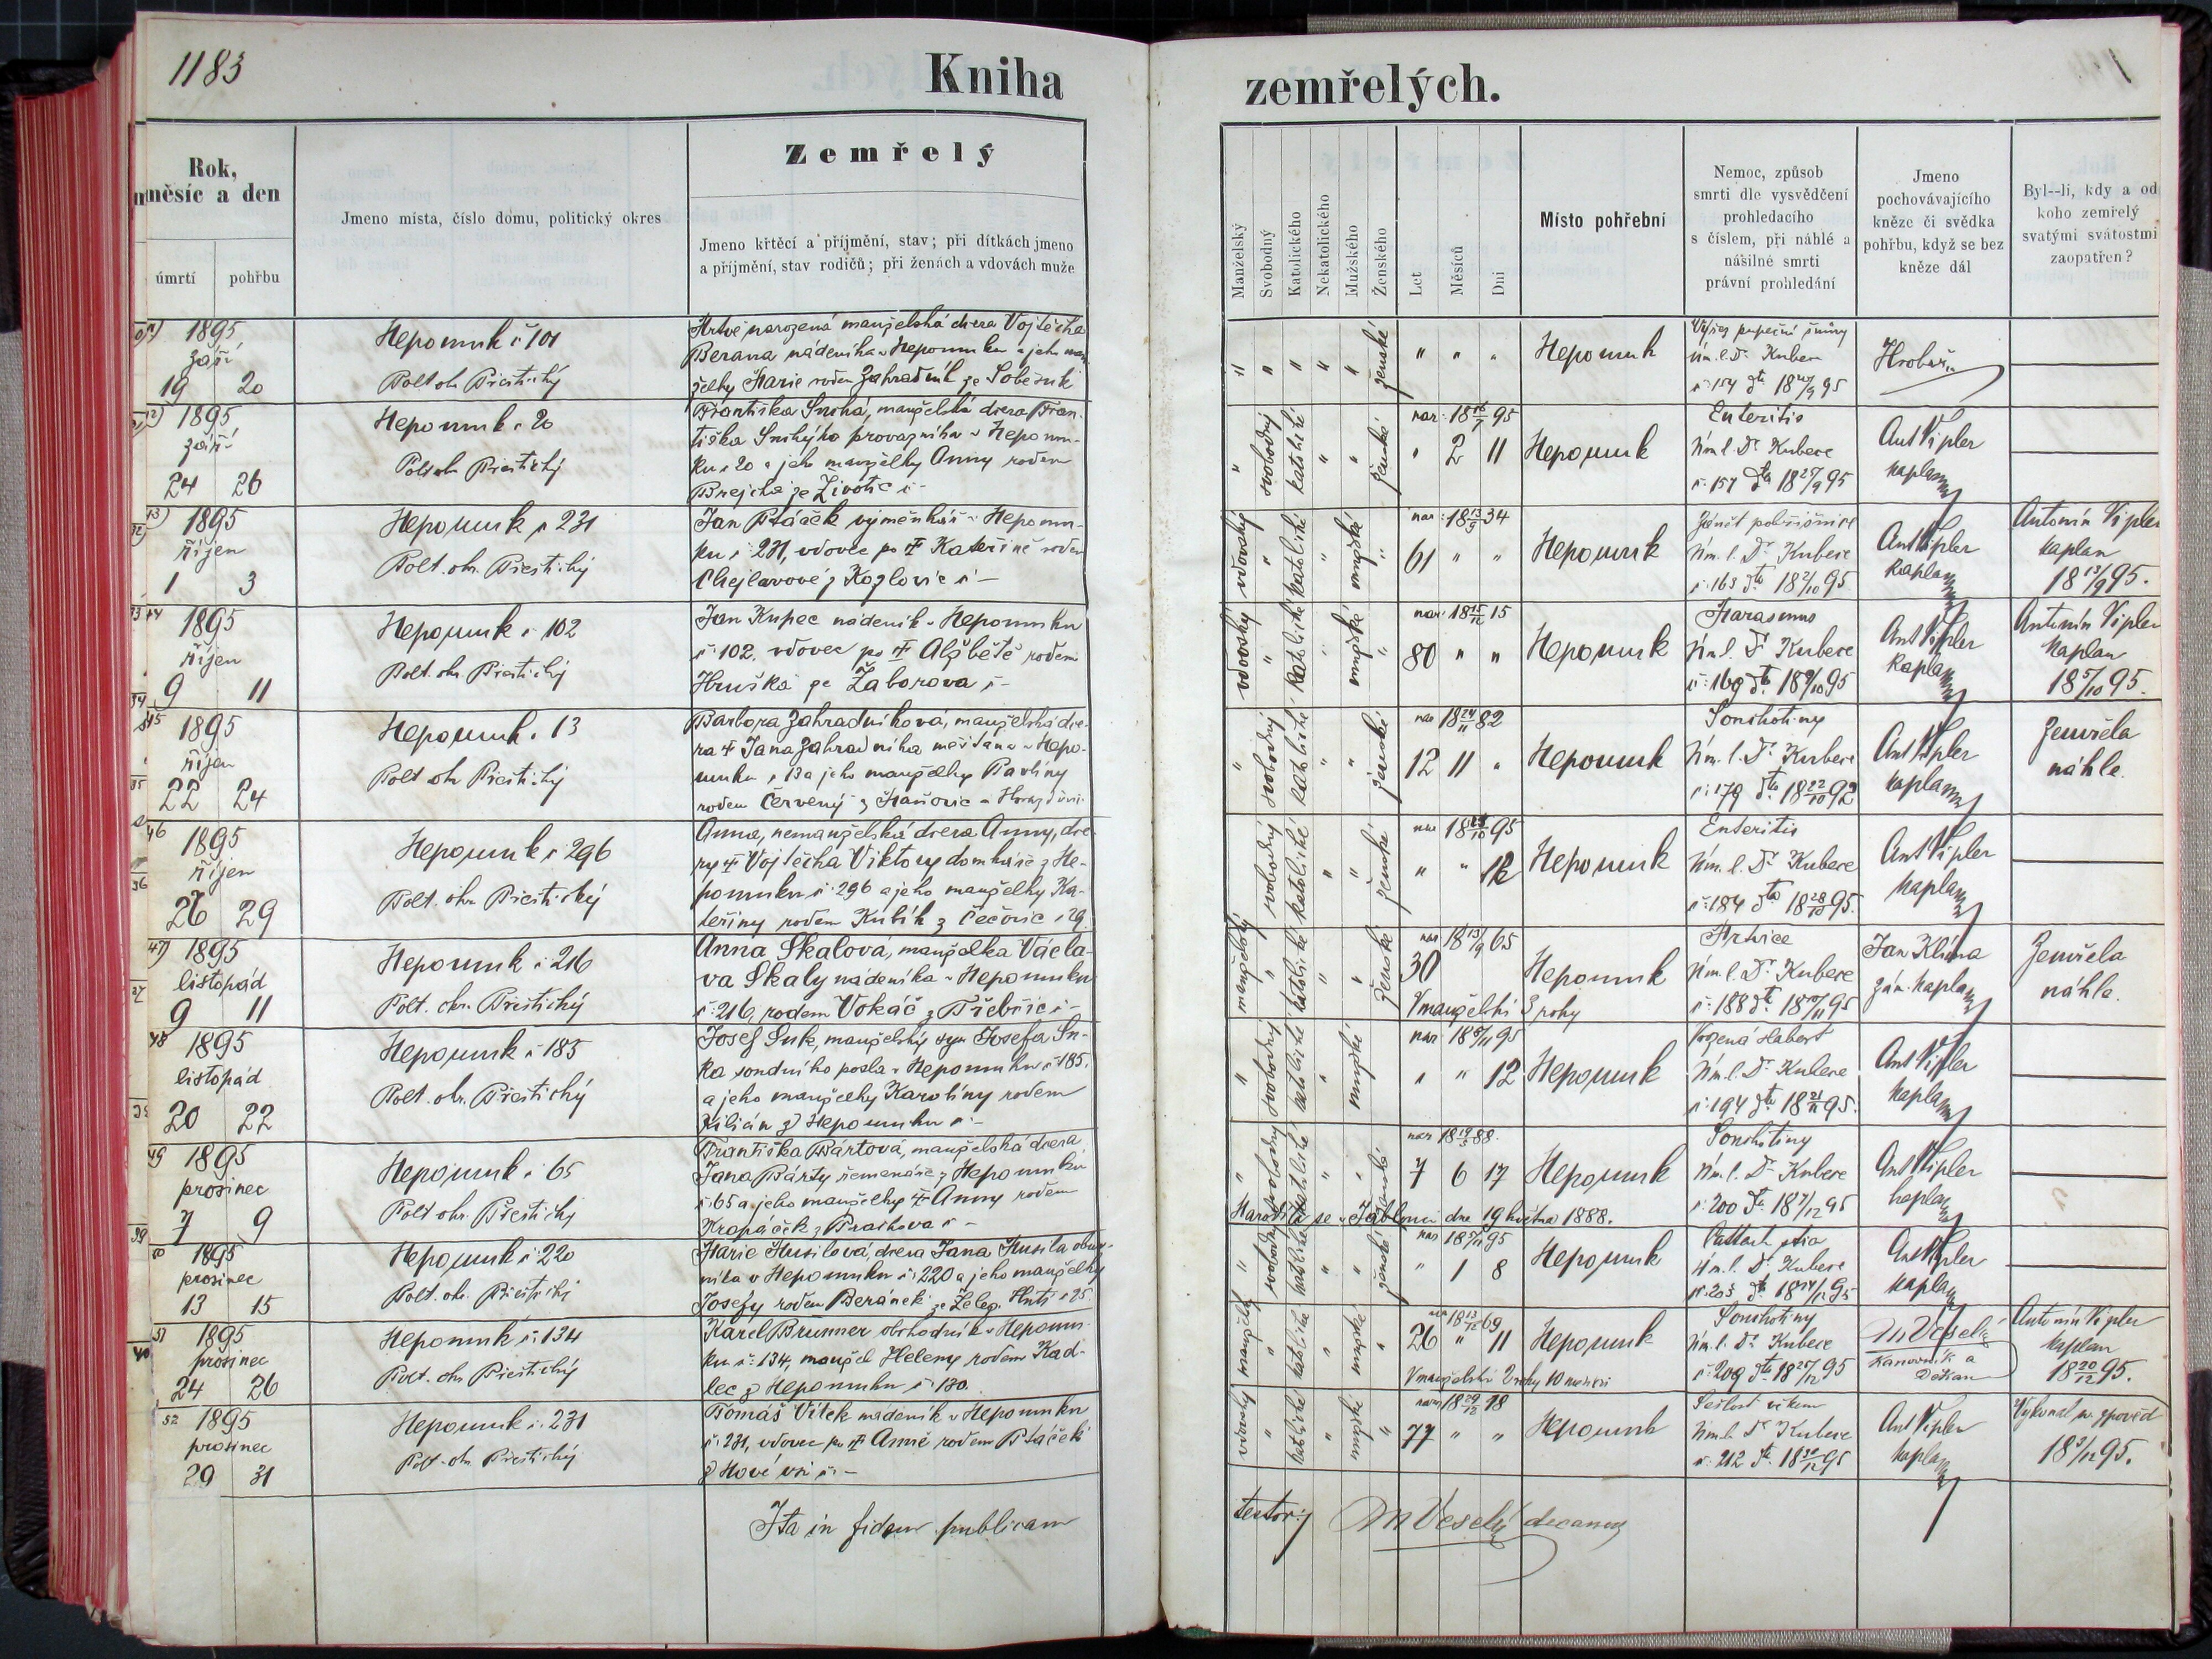 1183
Kniha
zemřelých.
Rok,
měsíc a den
úmrtí
pohřbu
Jmeno místa, číslo domu, politický okres
Zemřelý
Jmeno křtěcí a příjmění, stav; při dítkách jmeno
a příjmění, stav rodičů; při ženách a vdovách muže
Manželský
Svobodný
Katolického
Nekatolického
Mužského
Ženského
Let
Měsíců
Dní
Místo pohřební
Nemoc, způsob
smrti dle vysvědčení
prohledacího
s číslem, při náhlé a
násilné smrti
právní prohledání
Jmeno
pochovávajícího
kněze či svědka
pohřbu, když se bez
kněze dál
Byl--li, kdy a od
koho zemřelý
svatými svátostmi
zaopatřen?
1895
září
19 20
Nepomuk č 101
Polt okr Přeštický
Mrtvě narozená manželská dcera Vojtěcha
Berana nádeníka v Nepomuku a jeho man-
želky Marie rozen Zahradník ze Soběsuk
" " " " " ženské
" " "
Nepomuk
pupeční šnůry
Úm. l. Dr. Kubece
č 154 dto 18 20/9 95
Hrobař
1895
září
24 26
Nepomuk č 20
Polt okr Přeštický
Františka Suchá, manželská dcera Fran-
tiška Suchýho provazníka v Nepomu-
ku č 20 a jeho manželky Anny rozen
Brejcha ze Životic č -
" svobodný katolické " " ženské
nar. 18 16/7 95
" 2 11
Nepomuk
Enteritis
Úm l. Dr Kubece
č. 157 dto 18 25/9 95
Ant Vipler
kaplan
1895
říjen
1 3
Nepomuk č 231
Polt. okr. Přeštický
Jan Ptáček výměnkář v Nepomu-
ku č. 231, vdovec po † Kateřině rozen
Chejlavové z Kozlovic č -
vdovský " katolické " mužské "
nar. 18 13/9 34
61 " "
Nepomuk
Zánět pohrudnice
Úm. l. Dr. Kubece
č. 163 dto 18 2/10 95
Ant Vipler
kaplan
Antonín Vipler
kaplan
18 13/9 95.
44
1895
říjen
9 11
Nepomuk č 102
Polt. okr. Přeštický
Jan Kupec nádeník v Nepomuku
č 102. vdovec po † Alžbětě rozen
Hruška ze Záborova č -
vdovský " katolické " mužské "
nar 18 15/12 15
80 " "
Nepomuk
Marasmus
Úm l. Dr Kubece
č. 169 dto 18 9/10 95
Ant Vipler
kaplan
Antonín Vipler
kaplan
18 5/10 95.
45
1895
říjen
22 24
Nepomuk č 13
Polt okr Přeštický
Barbora Zahradníková, manželská dce-
ra † Jana Zahradníka měšťana v Nepo-
muku č 13 a jeho manželky Pavlíny
rozen Červený z Maňovic u Horažďovic
" svobodný katolické " " ženské
nar 18 24/11 82
12 11 "
Nepomuk
Souchotiny
Úm. l. Dr. Kubece
č. 179 dto 18 22/10 92
Ant Vipler
kaplan
Zemřela
náhle.
46
1895
říjen
26 29
Nepomuk č 296
Polt. okr Přeštický
Anna, nemanželská dcera Anny, dce-
ry † Vojtěcha Viktory domkáře z Ne-
pomuku č 296 a jeho manželky Ka-
teřiny rozen Kubík z Čečovic č 29
svobodný katolické " " ženské
" " 12
Nepomuk
Enteritis
Úm. l. Dr. Kubece
č. 184 dto 18 28/10 95.
Ant Vipler
kaplan
47)
1895
listopád
9 11
Nepomuk č 216
Polt. okr. Přeštický
Anna Skalová, manželka Václa-
va Skaly nádeníka v Nepomuku
č. 216, rozen Vokáč z Třebčic č -
manželský " katolické " " ženské
nar 18 13/9 65
30
V manželství 3 roky
Nepomuk
Mrtvice
Úm. l. Dr. Kubece
č. 188 dto 18 10/11 95
Jan Klíma
zám. kaplan
Zemřela
náhle.
48
1895
listopád
20 22
Nepomuk č 185
Polt. okr. Přeštický
Josef Suk, manželský syn Josefa Su-
ka soudního posla v Nepomuku č 185.
a jeho manželky Karolíny rozen
Kilián z Nepomuku č -
" svobodný katolické " mužské
nar 18 8/11 95
" " 12
Nepomuk
Vrozená slabost
Úm. l. Dr Kubece
č. 194 dto 18 21/11 95.
Ant Vipler
kaplan
49
1895
prosinec
7 9
Nepomuk č 65
Polt okr. Přeštický
Františka Bártová, manželská dcera
Jana Bárty řemenáře z Nepomuku
č 65 a jeho manželky † Anny rozen
Kropáček z Prachova č -
" svobodný katolické " " ženské
nar 18 19/5 88.
7 6 17
Narodila se v Jablonci dne 19 května 1888.
Nepomuk
Souchotiny
Úm. l. Dr Kubece
č. 200 dto 18 7/12 95
Ant Vipler
kaplan
50
1895
prosinec
13 15
Nepomuk č 220
Polt. okr. Přeštický
Marie Musilová, dcera Jana Musila obuv-
níka v Nepomuku č 220 a jeho manželky
Josefy rozen Beránek ze Želez. Huti č 25
" svobodný katolické " " ženské
" 1 8
Nepomuk
Úm. l. Dr. Kubece
č. 203 dto 18 14/12 95
Ant Vipler
kaplan
51
1895
prosinec
24 26
Nepomuk č. 134
Polt. okr Přeštický
Karel Brunner obchodník v Nepomu-
ku č. 134, manžel Heleny rozen Kad-
lec z Nepomuku č. 130.
manžel " katolické " mužské "
nar 18 13/12 69
26 " 11
V manželství 2 roky 10 měsíců
Nepomuk
Souchotiny
Úm. l. Dr Kubece
č. 209 dto 18 25/12 95
M Veselý
Kanovník a
Děkan
Antonín Vipler
kaplan
18 20/12 95.
52
1895
prosinec
29 31
Nepomuk č. 231
Polt. okr Přeštický
Tomáš Vítek nádeník v Nepomuku
č. 231, vdovec po † Anně rozen Ptáček
z Nové vsi č. -
vdovský " katolické " mužské "
nar 18 29/12 18
77 " "
Nepomuk
Sešlost věkem
Úm. l. Dr Kubece
č. 212 dto 18 30/12 95
Ant Vipler
kaplan
Vykonal sv. zpověd
18 3/12 95.
Ita in fidem publicam
testor:
M Veselý decanus